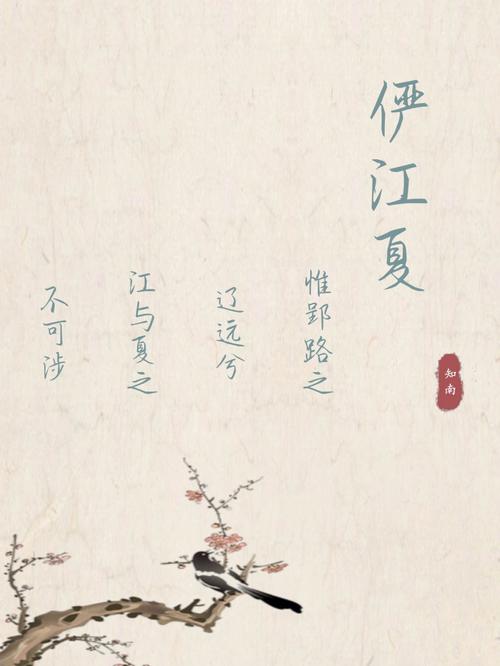 俨江夏
知南
惟郢路之
辽远兮
江与夏之
不可涉